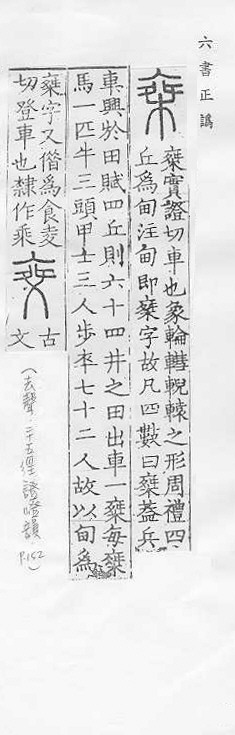 六書正譌
椉實證切車也象輪轊輗轅之形周禮四
丘為甸注甸即椉字故凡四數曰椉葢兵
車興於田賦四丘則六十四井之田出車一椉每椉
馬一匹牛三頭甲士三人步卒七十二人故以甸為
椉字又借為食麦
切登車也隸作乘
古
文
(去聲二十五徑證嶝韻
P.152)